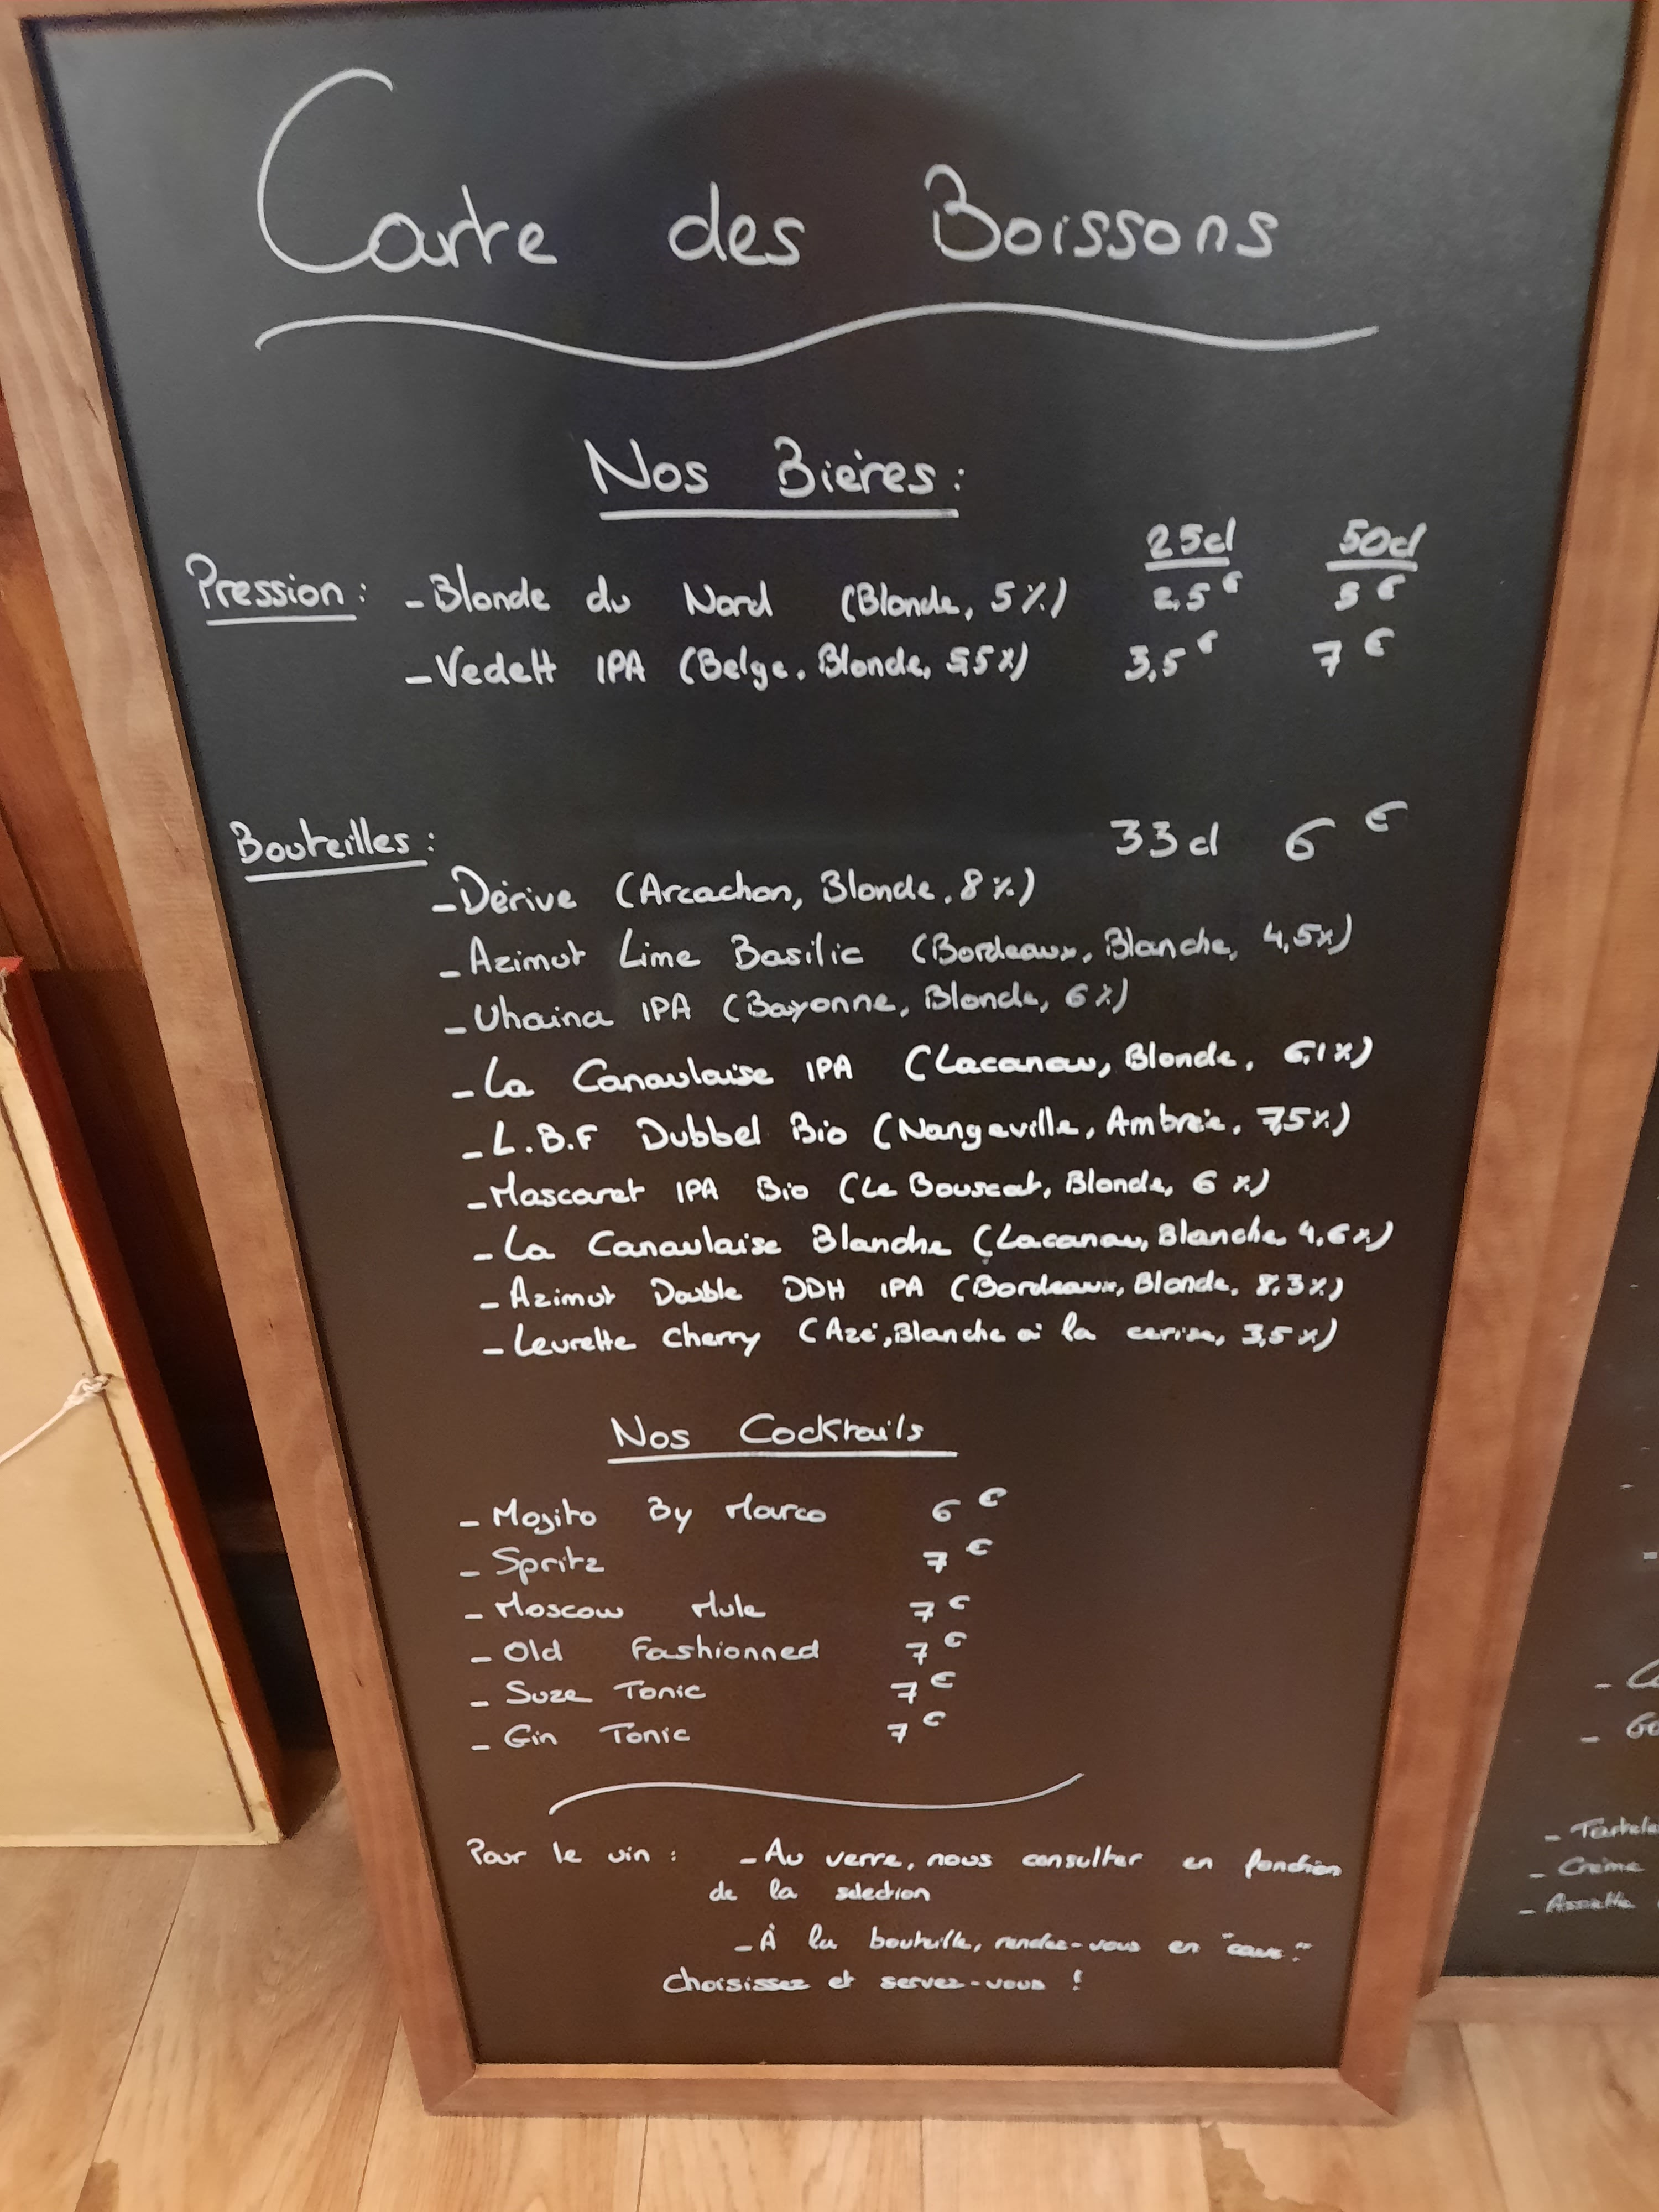 Carte des Boissons
Nos Bières :
25cl 50cl
Pression : - Blonde du Nord (Blonde, 5%) 2,5€ 5€
- Vedett IPA (Belge, Blonde, 5,5%) 3,5€ 7€
Bouteilles : 33cl 6€
- Dérive (Arcachon, Blonde, 8%)
- Azimut Lime Basilic (Bordeaux, Blanche, 4,5%)
- Uhaina IPA (Bayonne, Blonde, 6%)
- La Canaulaise IPA (Lacanau, Blonde, 6,1%)
- L.B.F Dubbel Bio (Nangeville, Ambrée, 7,5%)
- Mascaret IPA Bio (Le Bouscat, Blonde, 6%)
- La Canaulaise Blanche (Lacanau, Blanche 4,6%)
- Azimut Double DDH IPA (Bordeaux, Blonde, 8,3%)
- Leurette Cherry (Azé, Blanche à la cerise, 3,5%)
Nos Cocktails
- Mojito By Marco 6€
- Spritz 7€
- Moscow Mule 7€
- Old Fashionned 7€
- Suze Tonic 7€
- Gin Tonic 7€
Pour le vin : - Au verre, nous consulter en fonction
de la selection
- À la bouteille, rendez-vous en "cave".
Choisissez et servez-vous !
- Crème
- Assiette